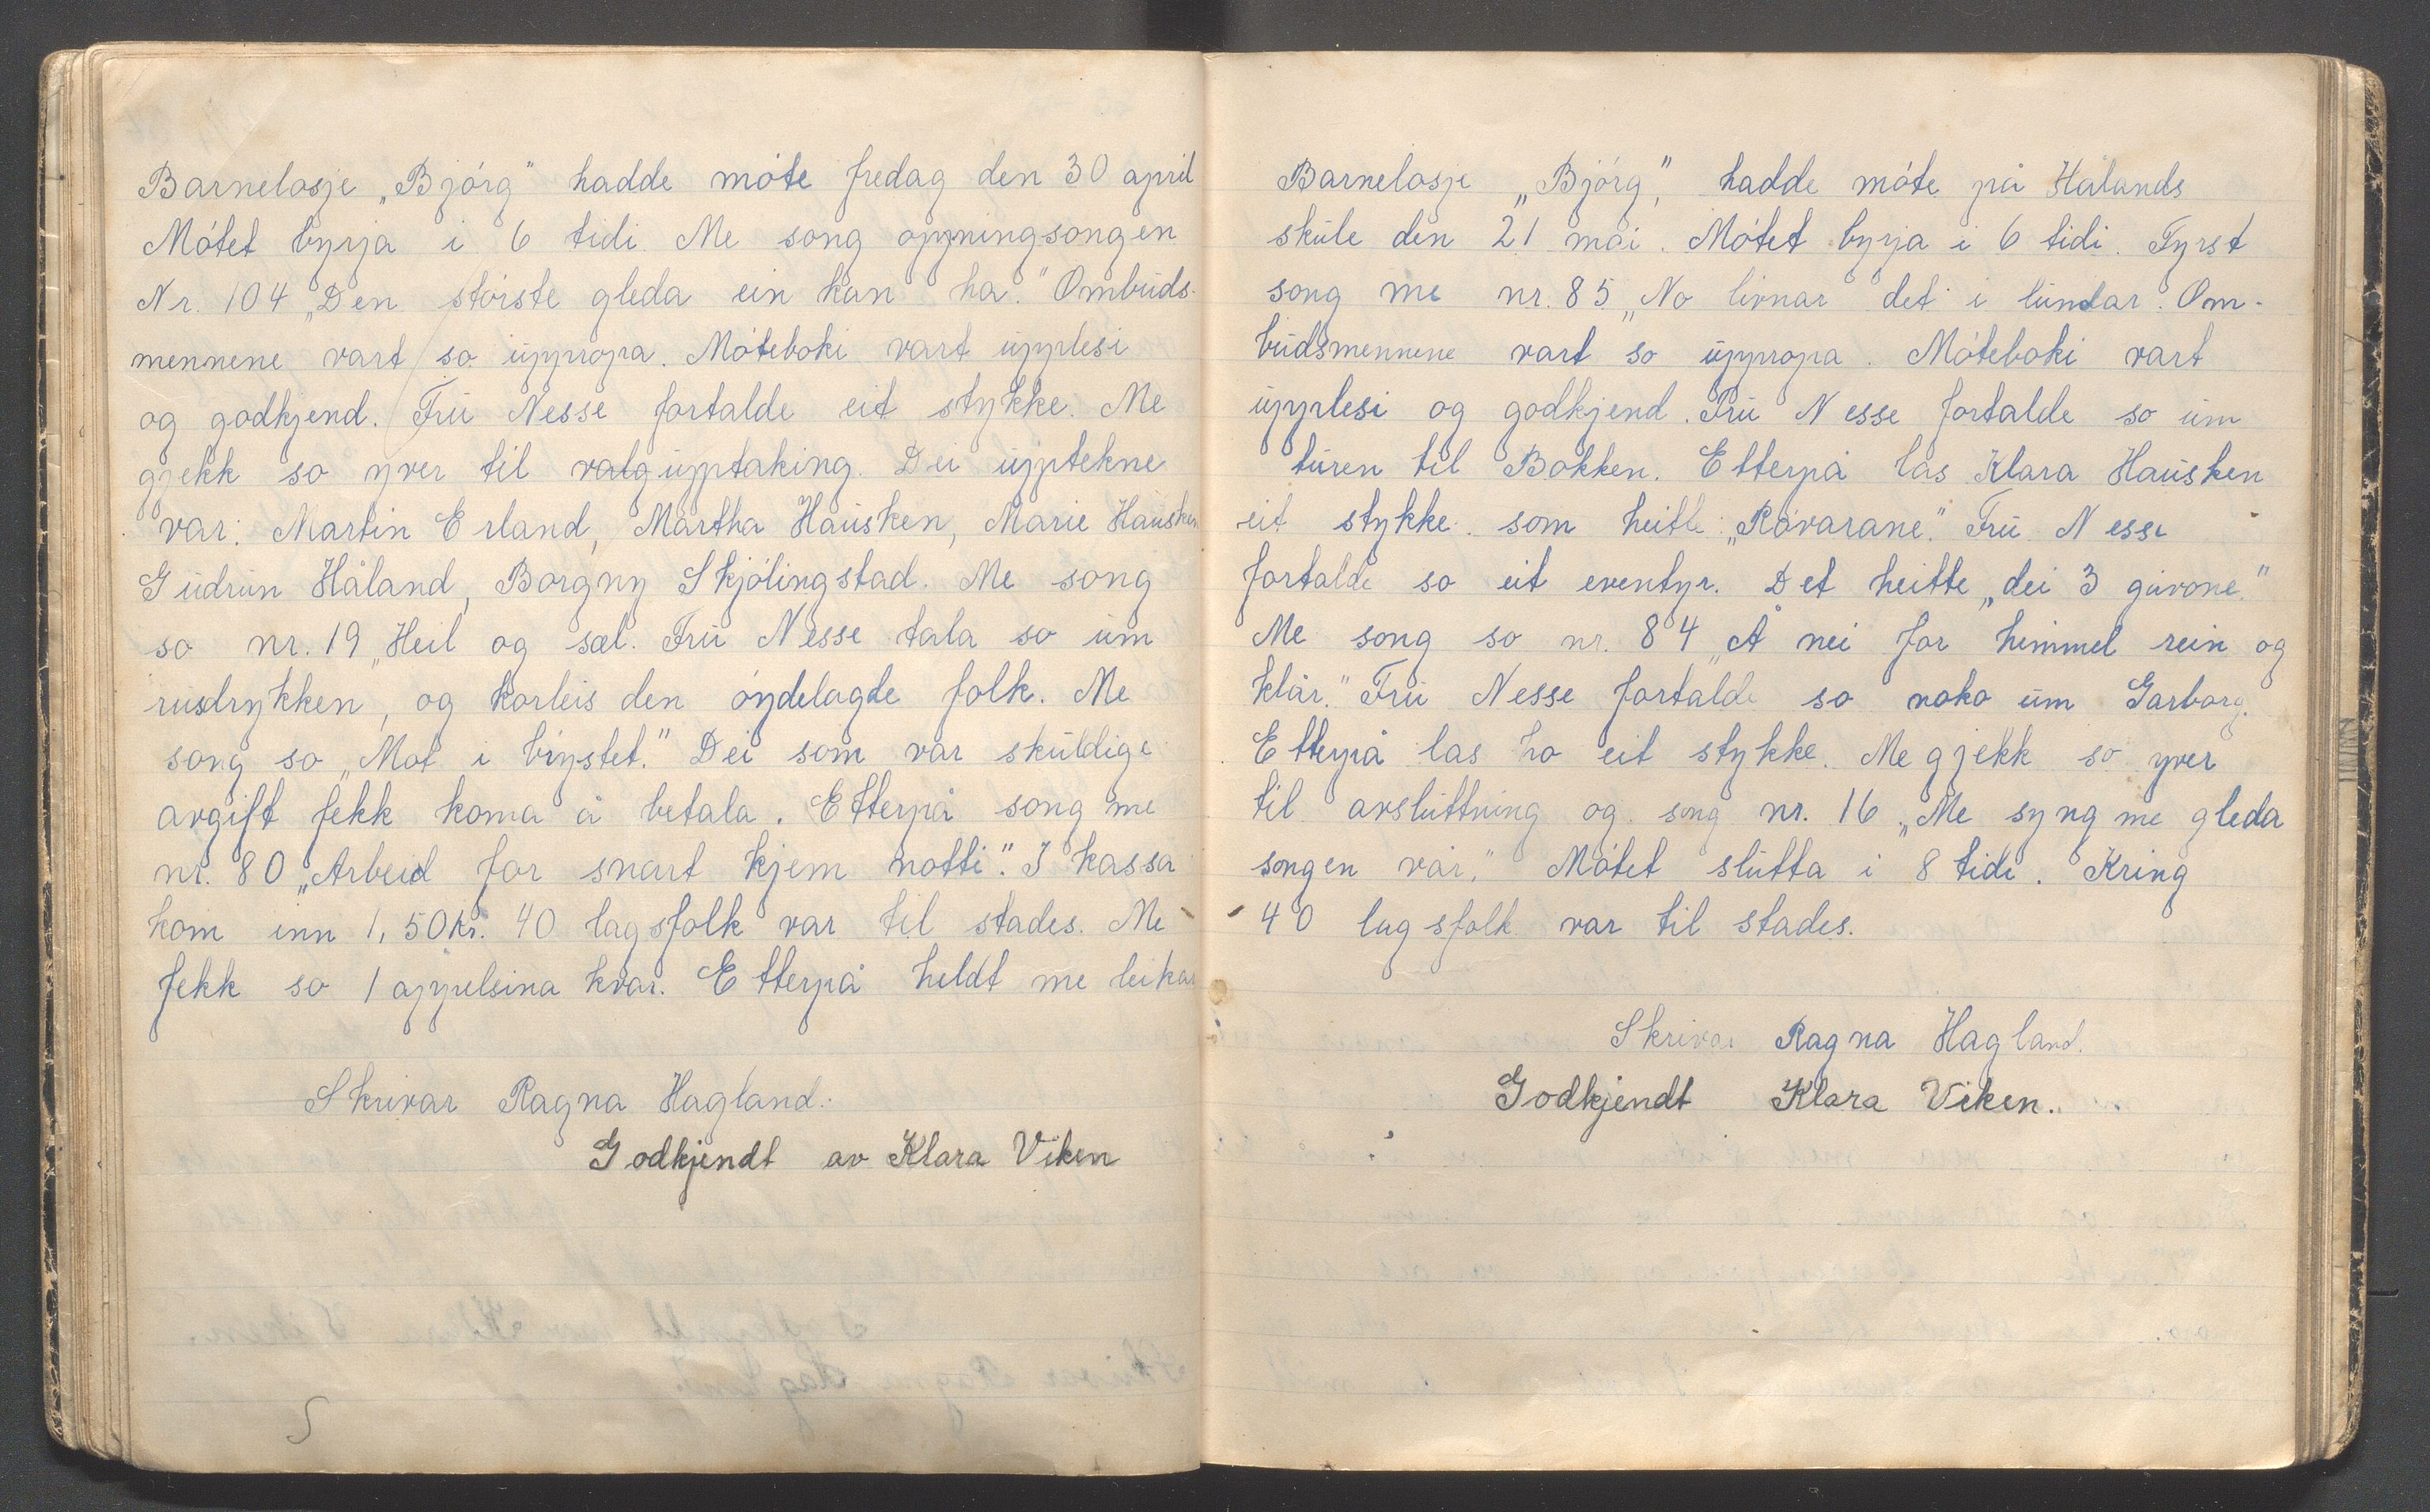 Barnelosje „Bjórg" hadde móte fredag den 30 april
Mótet byrja i 6 tidi. Me song opningsongen
Nr. 104 „Den stórste gleda ein kan ha." Ombuds-
mennene vart so uppropa. Móteboki vart upplesi
og godkjend. Fru Nesse fortalde eit stykke. Me
gjekk so yver til valg upptaking. Dei upptekne
var: Martin Erland, Martha Hausken, Marie Hausken
Gudrun Håland, Borgny Skjólingstad. Me song
so nr. 19 „Heil og sæl. Fru Nesse tala so um
rusdrykken, og korleis den óydelagde folk. Me
song so „Mot i brystet." Dei som var skuldige
avgift fekk koma å betala. Etterpå song me
nr. 80 „Arbeid for snart kjem notti". I kassa
kom inn 1,50kr. 40 lagsfolk var til stades. Me
fekk so 1 appelsina kvar. Etterpå heldt me leikar
Skrivar Ragna Hagland.
Godkjendt av Klara Viken
Barnelosje „Bjórg", hadde móte på Hålands
skule den 21 mai. Mótet byrja i 6 tidi. Fyrst
song me nr. 85 „No livnar det i lundar. Om-
budsmennene vart so uppropa. Móteboki vart
upplesi og godkjend. Fru Nesse fortalde so um
turen til Bokken. Etterpå las Klara Hausken
eit stykke som heitte: „Róvarane". Fru Nesse
fortalde so eit eventyr. Det heitte „dei 3 gåvone."
Me song so nr. 84 „Å nei for himmel rein og
klår." Fru Nesse fortalde so noko um Garborg.
Etterpå las ho eit stykke. Me gjekk so yver
til avsluttning og song nr. 16 „Me syng me gleda
songen vår." Mótet slutta i 8 tidi. Kring
40 lagsfolk var til stades.
Skrivar Ragna Hagland.
Godkjendt Klara Viken.